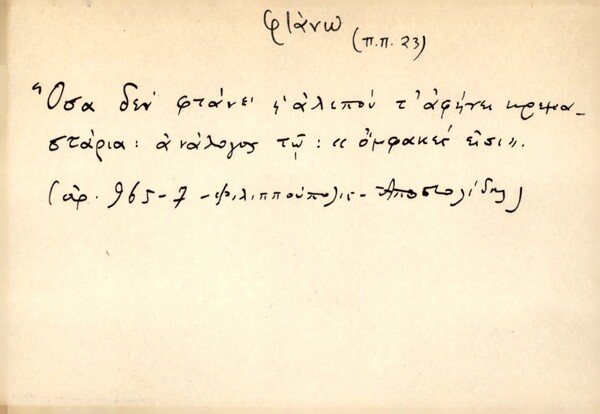 φτάνω
(π.π. 23)
"Οσα δεν φτάνει ἡ ἀλεπού τ' ἀφήνει κρεμα-
στάρια: ἀνάλογος τῷ: «ὄμφακές εἰσι».
(ἀρ. 965-7 - Φιλιππούπολις - Ἀποστολίδης)